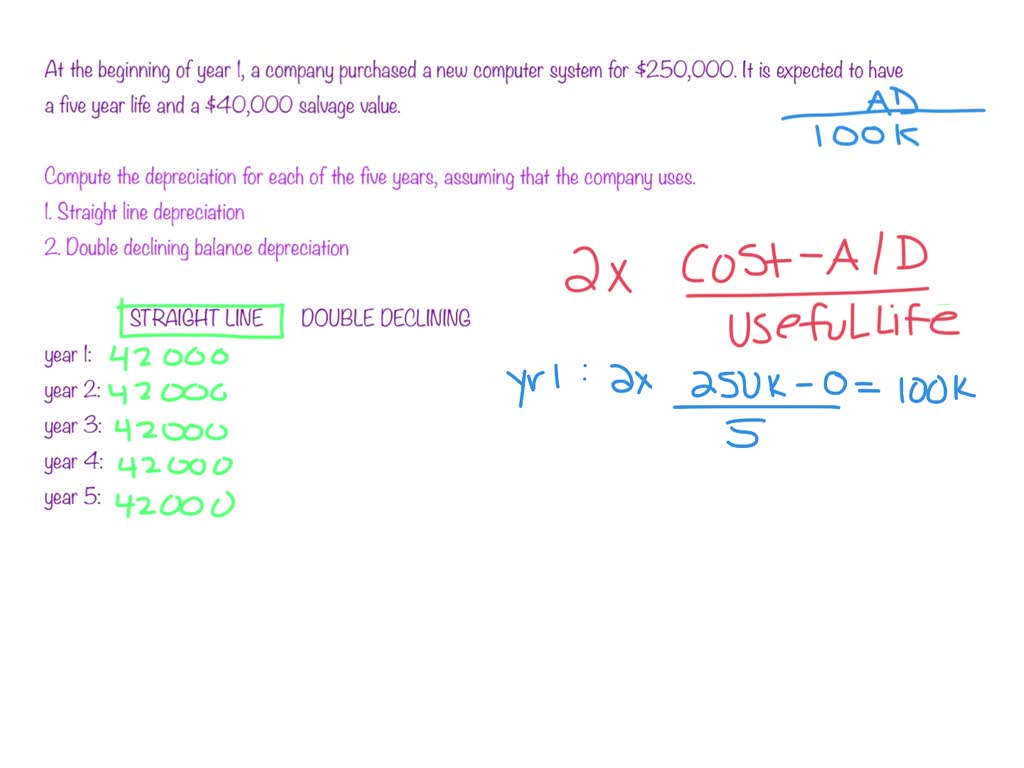 At the beginning of year 1, a company purchased a new computer system for $250,000. It is expected to have
a five year life and a $40,000 salvage value.
AD
100K
Compute the depreciation for each of the five years, assuming that the company uses.
1. Straight line depreciation
2. Double declining balance depreciation
2x Cost - A/D
Useful Life
STRAIGHT LINE DOUBLE DECLINING
year 1: 42000
year 2: 42000
year 3: 42000
year 4: 42000
year 5: 42000
yr1 : 2x 250K - 0 = 100K
5